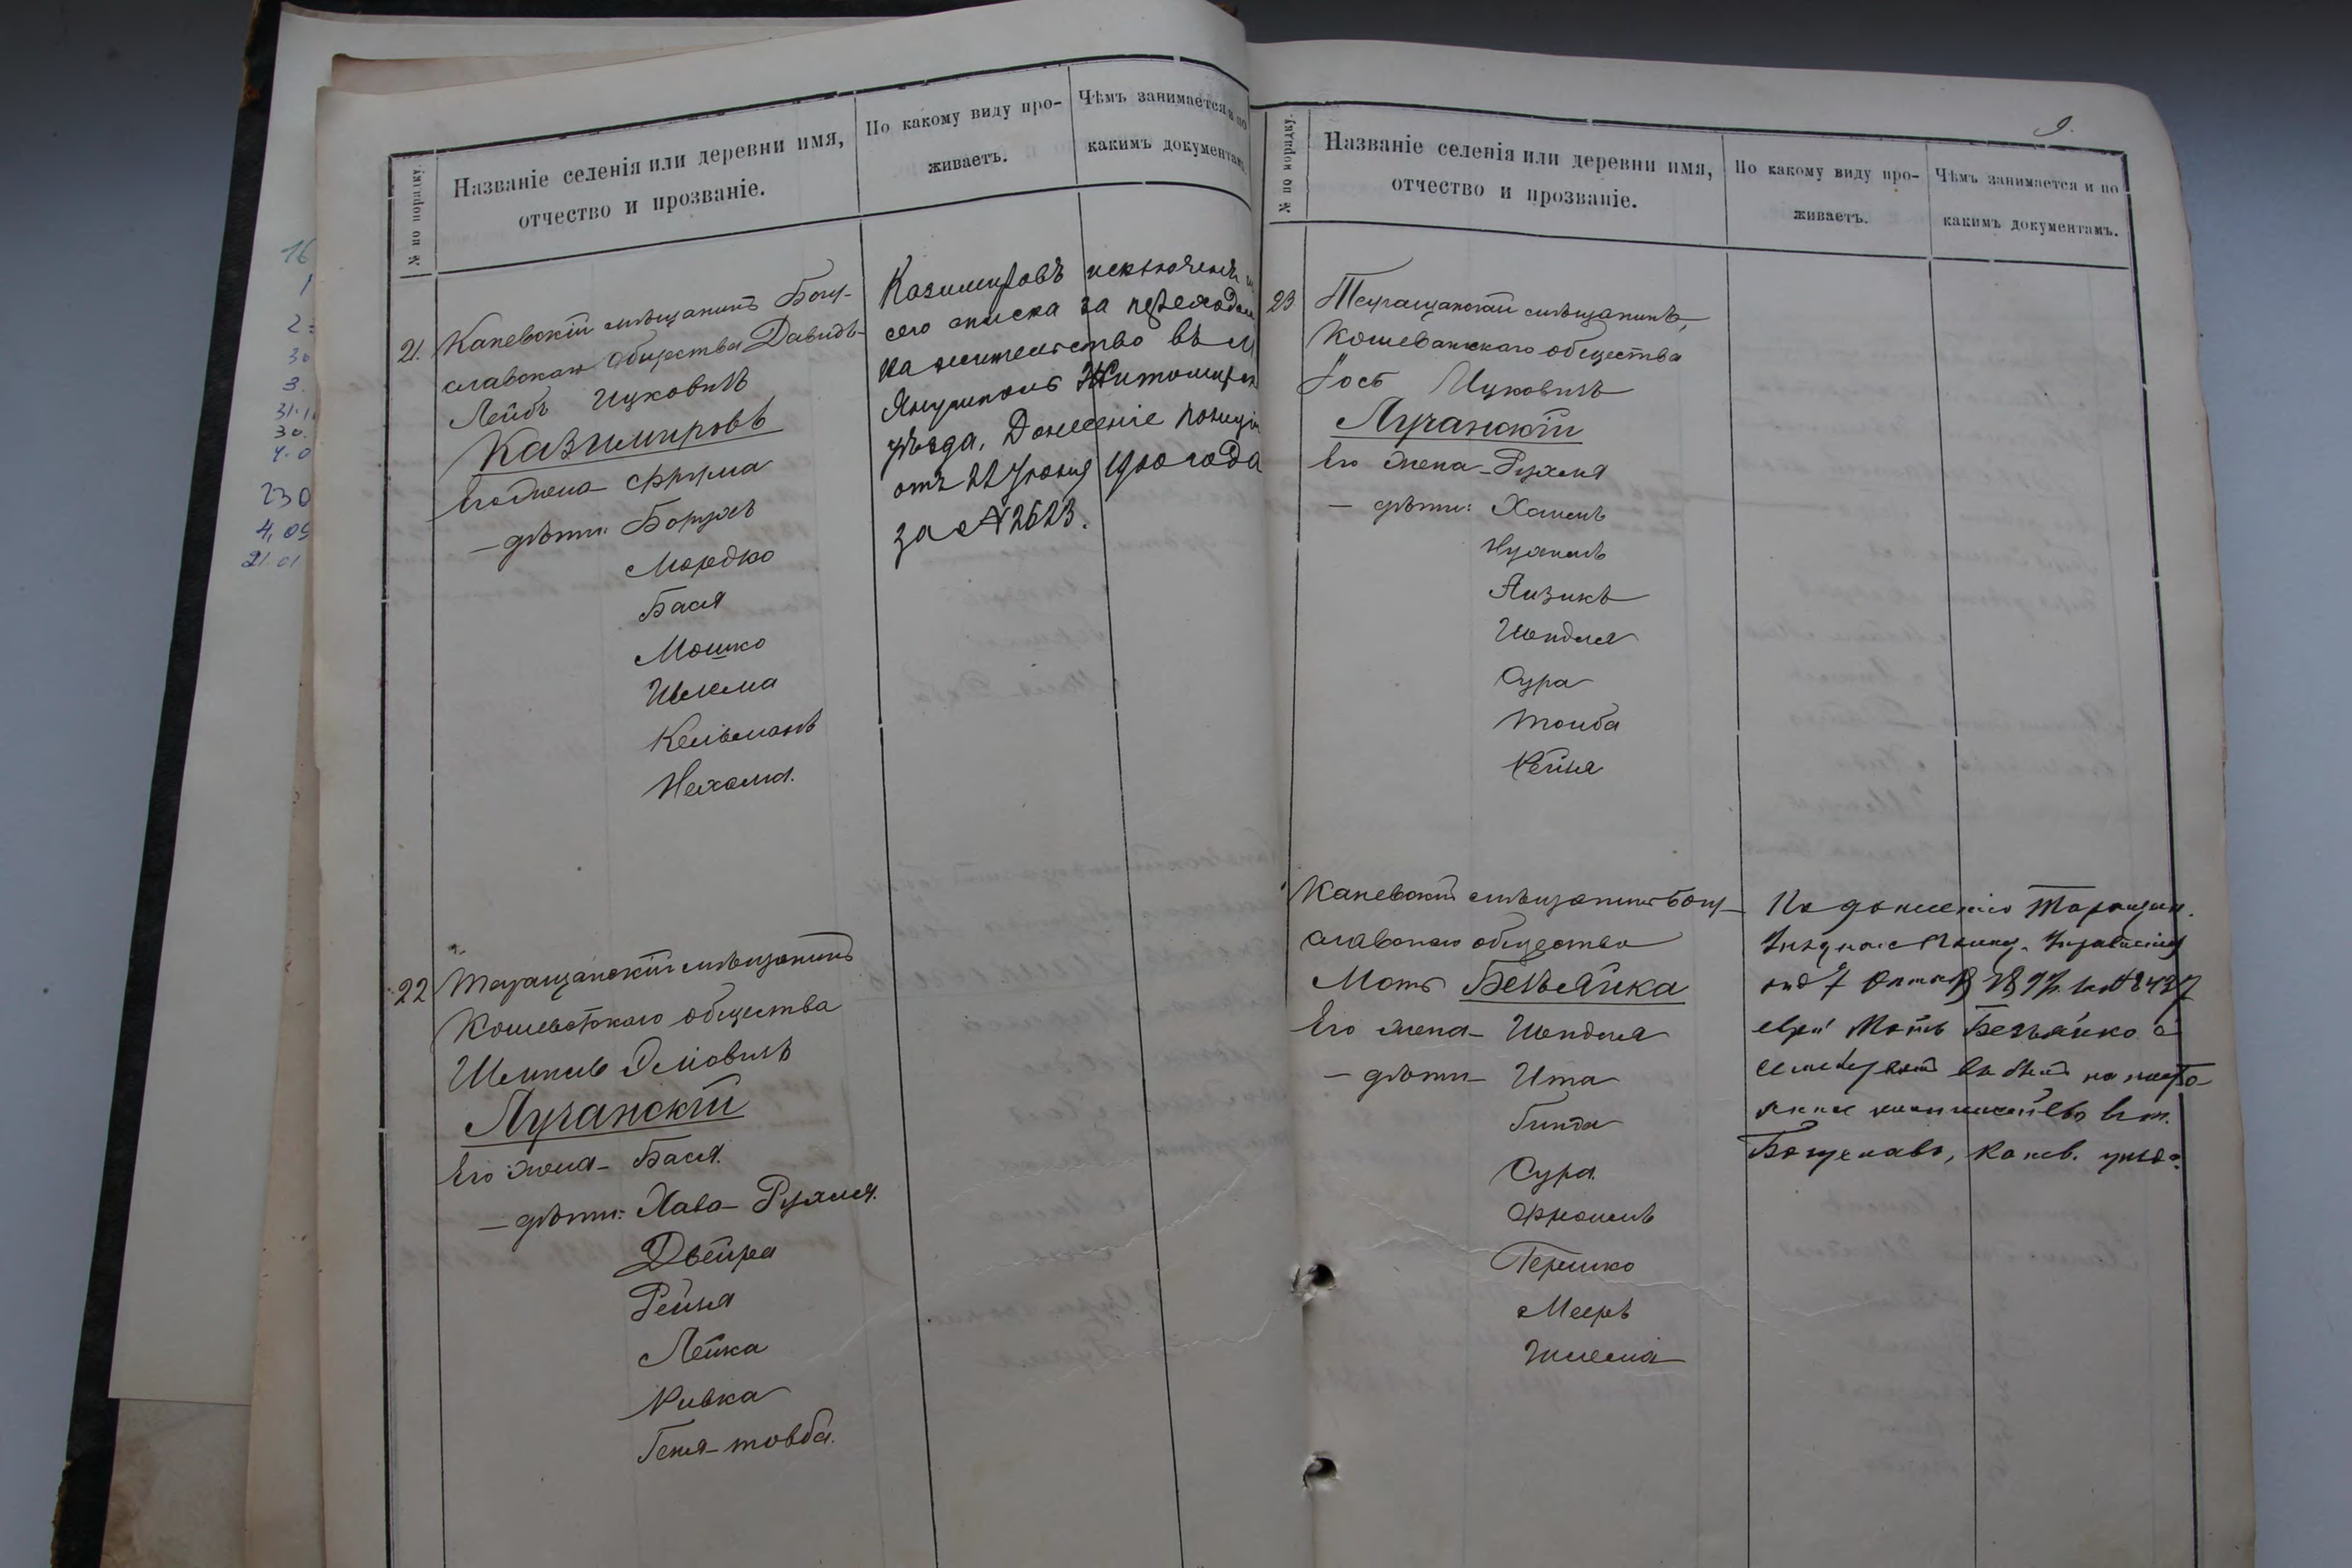 № по порядку.
Названіе селенія или деревни имя,
отчество и прозваніе.
По какому виду про-
живаетъ.
Чѣмъ занимается и по
какимъ документамъ.
21. Каневскій мѣщанинъ Богу-
славскаго общества Давидъ-
Лейбъ Ицковичъ
Казимировъ
Его жена Фрума
— дѣти: Борухъ
Мордко
Бася
Мошко
Шлема
Кельманъ
Нехама.
Казимировъ исключенъ
сего списка за переходомъ
на жительство въ м
Янушполь Житомирск
уѣзда. Донесеніе полиціи
отъ 22 Іюня 1900 года
за №2623.
22 Таращанскій мѣщанинъ
Кошеватскаго общества
Шмиль
Лучанскій
Его жена - Бася.
— дѣти: Хава - Рухля.
Двейра
Рейзя
Лейка
Ривка
Геня - товба.
9.
№ по порядку.
Названіе селенія или деревни имя,
отчество и прозваніе.
По какому виду про-
живаетъ.
Чѣмъ занимается и по
какимъ документамъ.
23 Таращанскій мѣщанинъ,
Кошеватскаго общества
Іосъ Ицковичъ
Лучанскій
Его жена - Рухля
— дѣти: Хаимъ
Нухимъ
Айзикъ
Шендля
Сура
Товба
Рейзя
Каневскій мѣщанинъ Богу-
славскаго общества
Моть Безъяйка
Его жена - Шендля
— дѣти - Ита
Гинда
Сура
Фроимъ
Гершко
Мееръ
Шлема
По донесенію Таращан.
Уѣзднаго Полиц. Управленія
отъ 7 Октяб 1897. за №8437
евр. Моть Безъяйко съ
на посто-
янное жительство въ м.
Богуславъ, Канев. уѣзда.
16
1
30
3.
31.1
30.
4.0
230
4,09
21.01